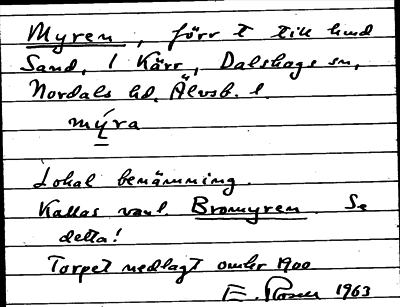 Myren, förr t till hmd
Sand, 1 Kärr, Dalskogs sn,
Nordals hd. Älvsb. l.
mýra
Lokal benämning.
Kallas vanl. Bromyren. Se
detta!
Torpet nedlagt omkr 1900
E. Rosell 1963